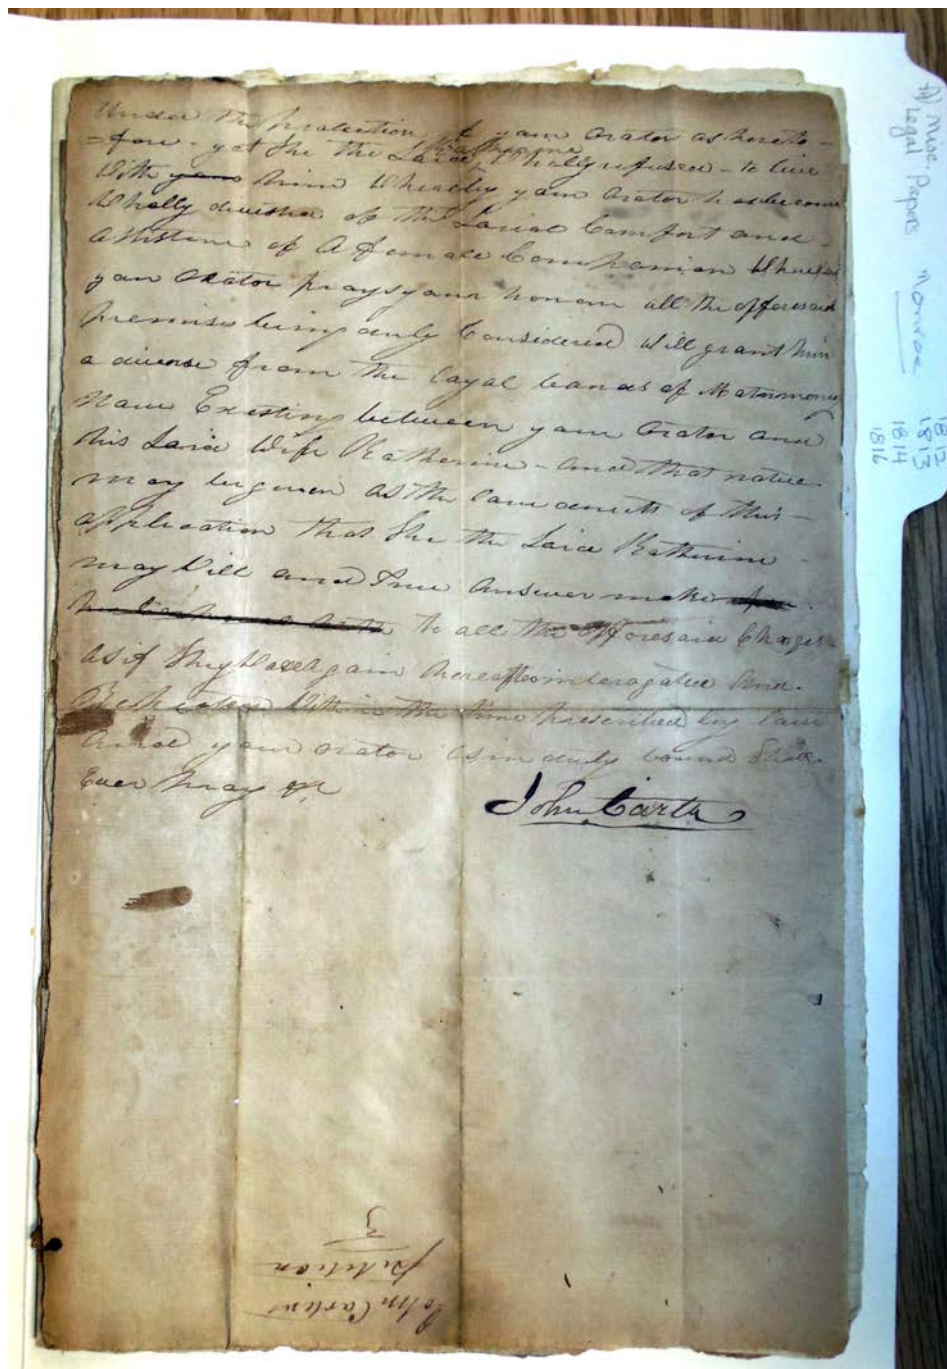 Under the Protection of your Orator as hereto-
=fore - yet She the Said Katherine Wholly refused - to live
With your him Whereby your Orator has become
Wholly divested of the Social Comfort and
assistance of A female Companion Wherefore
your Orator prays your honour all the afforesaid
premises being duly Considered Will grant him
a divorse from the Legal bands of Matrimony
Now Existing between your Orator and
his Said Wife Katherine - and that notice
may be given as the Law directs of this
application that She the Said Katherine
may Will and True Answer make
to all the afforesaid Charges
as if She Was again thereafter interogated And
Within the time prescribed by Law
And your orator as in duty bound Shall
Ever Pray &c
John Carter
John Carters
petition
3
Misc. Papers
Legal
Monroe
1812
1813
1814
1816